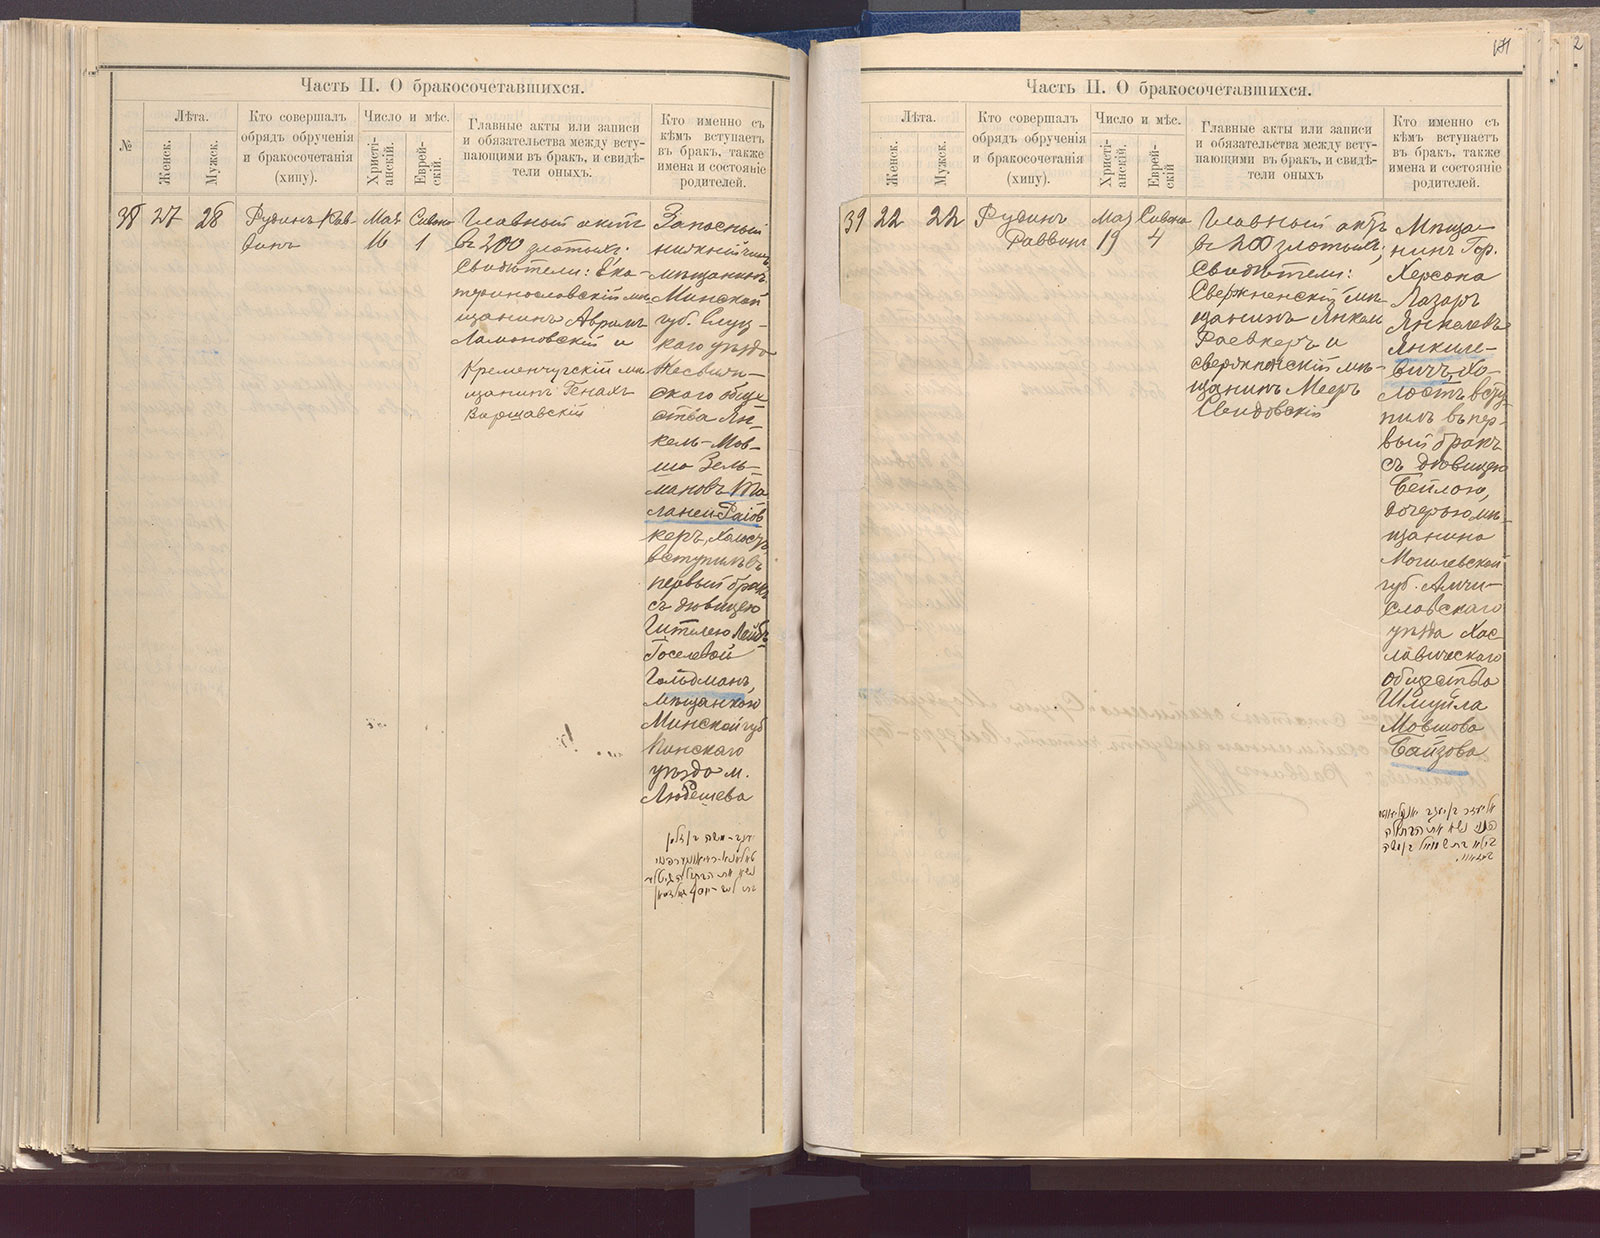 Часть II. О бракосочетавшихся.
№
Лѣта.
Женск.
Мужск.
Кто совершалъ
обрядъ обрученія
и бракосочетанія
(хипу).
Число и мѣс.
Христі-
анскій.
Еврей-
скій.
Главные акты или записи
и обязательства между всту-
пающими въ бракъ, и свидѣ-
тели оныхъ.
Кто именно съ
кѣмъ вступаетъ
въ бракъ, также
имена и состояніе
родителей.
38
27
28
Рудинъ Рав-
винъ
Мая
16
Сивна
1
Главный актъ
въ 200 злотыхъ.
Свидѣтели: Ека-
теринославскій мѣ-
щанинъ Аврамъ
Ламоновскій и
Кременчугскій мѣ-
щанинъ Генахъ
Варшавскій
Запасный
нижній чинъ
мѣщанинъ
Минской
губ. Слуц-
каго уѣзда
Несвиж-
скаго обще-
ства Ян-
кель-Мов-
ша Зель-
мановъ
керъ, холостъ,
вступилъ въ
первый бракъ
съ дѣвицею
Гителею Лейбъ-
Іоселевой
Гольдманъ,
мѣщанкою
Минской губ
Пинскаго
уѣзда м.
Любешева
יעקב-משה בן זלמן
נשא את הבתולה גיטל
בת לייב-יוסף גאלדמאן
Часть II. О бракосочетавшихся.
Лѣта.
Женск.
Мужск.
Кто совершалъ
обрядъ обрученія
и бракосочетанія
(хипу).
Число и мѣс.
Христі-
анскій.
Еврей-
скій
Главные акты или записи
и обязательства между всту-
пающими въ бракъ, и свидѣ-
тели оныхъ
Кто именно съ
кѣмъ вступаетъ
въ бракъ, также
имена и состояніе
родителей.
39
22
22
Рудинъ
Раввинъ
Мая
19
Сивна
4
Главный актъ
въ 200 злотыхъ,
Свидѣтели:
Свержненскій мѣ-
щанинъ Янкель
Раевкеръ и
мѣ-
щанинъ Мееръ
Свидовскій
Мѣща-
нинъ Гор.
Херсона
Лазарь
Янкелевъ
Янкиле-
вичъ, хо-
лостъ всту-
пилъ въ пер-
вый бракъ
съ дѣвицею
Бейлою,
дочерью мѣ-
щанина
Могилевской
губ. Мсти-
славскаго
уѣзда Хас-
лавическаго
общества
Шмуйла
Мовшова
Байзова
אליעזר בן יעקב
נשא את הבתולה
ביילא בת שמואל בן משה